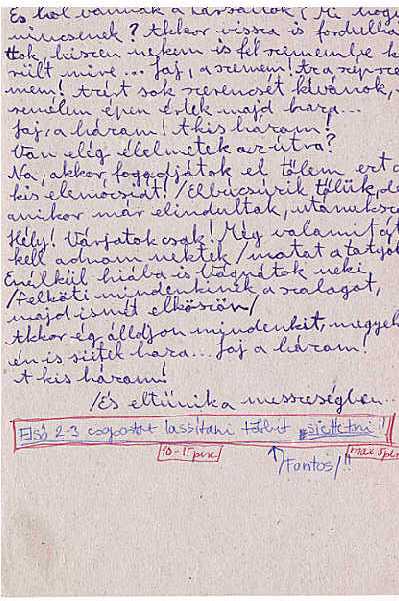 És hol vannak a társaitok? Mi
nincsenek? Akkor vissza is fordulha
ttok, hiszen nekem is fel
sült mire... Jaj, a szemem!
mem! Azért sok szerencsét kívánok,
remélem épen értek majd haza...
Jaj, a házam! A kis házam!
Van elég élelmetek az útra?
Na, akkor fogadjátok el tőlem ezt a
kis elemózsiát! /Elbúcsúzik tőlük, de
amikor már elindultak, utánuk
Hély! Várjatok csak! Még valamit
kell adnom nektek /matat a
Enélkül hiába is vágnátok neki,
/felköti mindenkinek a szalagot,
majd ismét elköszön/
Akkor ég álldjon mindenkit, megyek
én is siitek haza... Jaj a házam!
A kis házam!
/és eltűnik a messzeségben..
Első 2-3 csapatot lassítani többit siettetni!
10-15 perc
/Fontos/!!
max 5 per